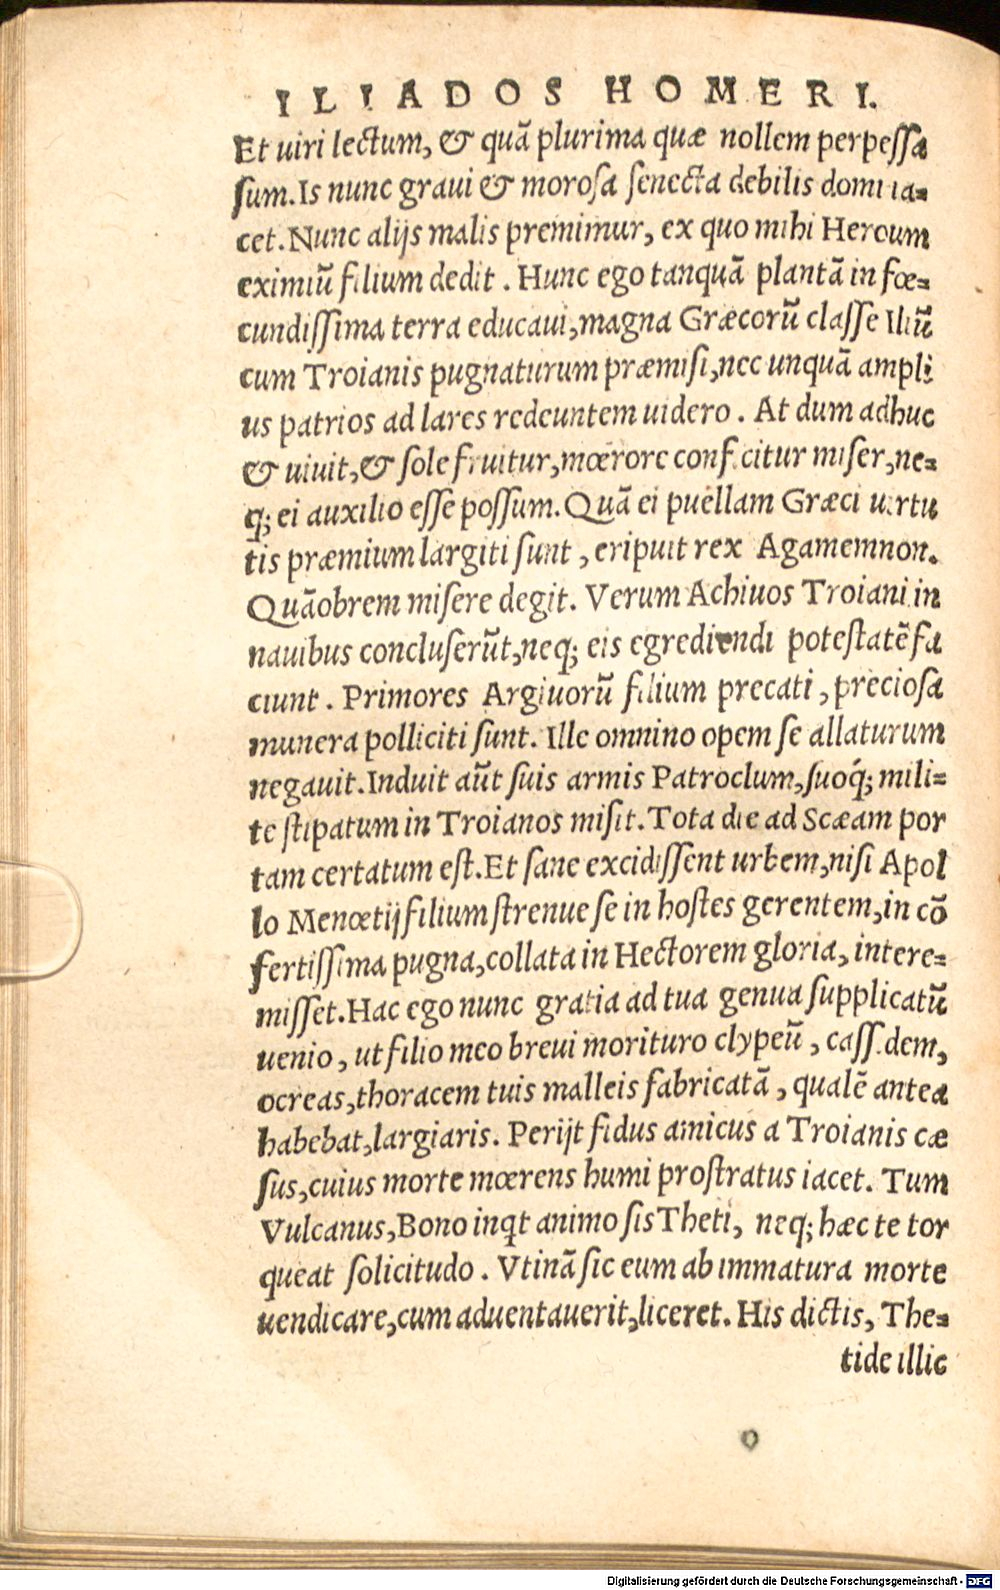 ILIADOS HOMERI.
Et uiri lectum, & quã plurima quæ nollem perpessa
sum. Is nunc graui & morosa senecta debilis domi ia-
cet. Nunc alijs malis premimur, ex quo mihi Heroum
eximiũ filium dedit. Hunc ego tanquã plantã in fœ-
cundissima terra educaui, magna Græcorũ classe Iliũ
cum Troianis pugnaturum præmisi, nec unquã ampli
us patrios ad lares redeuntem uidero. At dum adhuc
& uiuit, & sole fruitur, mœrore conficitur miser, ne-
q; ei auxilio esse possum. Quã ei puellam Græci uirtu
tis præmium largiti sunt, eripuit rex Agamemnon.
Quãobrem misere degit. Verum Achiuos Troiani in
nauibus concluserũt, neq; eis egrediendi potestatẽ fa
ciunt. Primores Argiuorũ filium precati, preciosa
munera polliciti sunt. Ille omnino opem se allaturum
negauit. Induit aũt suis armis Patroclum, suoq́; mili-
te stipatum in Troianos misit. Tota die ad Scæam por
tam certatum est. Et sane excidissent urbem, nisi Apol
lo Menœtij filium strenue se in hostes gerentem, in cõ
fertissima pugna, collata in Hectorem gloria, intere-
misset. Hac ego nunc gratia ad tua genua supplicatũ
uenio, ut filio meo breui morituro clypeũ, cassidem,
ocreas, thoracem tuis malleis fabricatã, qualẽ antea
habebat, largiaris. Perijt fidus amicus a Troianis cæ
sus, cuius morte mœrens humi prostratus iacet. Tum
Vulcanus, Bono inqt animo sis Theti, neq; hæc te tor
queat solicitudo. Vtinã sic eum ab immatura morte
uendicare, cum aduentauerit, liceret. His dictis, The-
tide illic
Digitalisierung gefördert durch die Deutsche Forschungsgemeinschaft - DFG